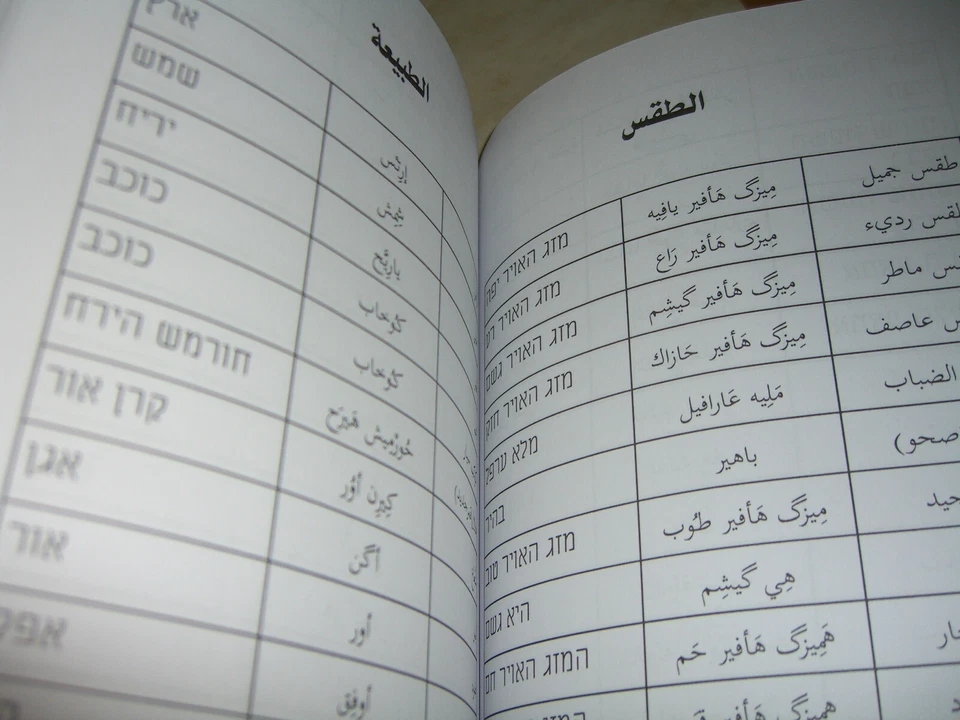 الطبيعة
ארץ
إرتس
שמש
شِمِش
יריח
يارِيَح
כוכב
كوُخاب
כוכב
كوُخاب
חורמש הירח
خُورْمِيش هَيرَح
קרן אור
كِيرِن أوُر
אגן
أگن
אור
أور
אפק
أوفِق
الطقس
طقس جميل
مِيزگ هَأفير يافِيه
מזג האויר יפה
طقس رديء
مِيزگ هَأفير رَاع
מזג האויר רע
ماطر
مِيزگ هَأفير گيشِم
מזג האויר גשם
عاصف
مِيزگ هَأفير حَازاك
מזג האויר חזק
الضباب
مَلِيه عَارافيل
מלא ערפל
(صحو)
باهير
בהיר
مِيزگ هَأفير طُوب
מזג האויר טוב
هِي گيشِم
היא גשם
هَمِيزگ هَأفير حَم
המזג האויר חם